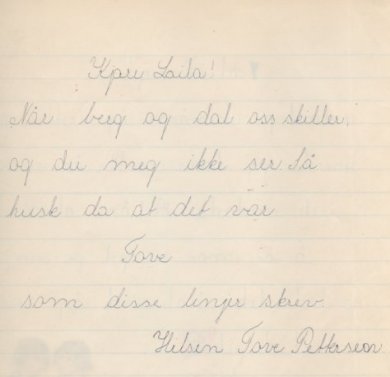 Kjære Laila!
Når berg og dal oss skiller,
og du meg ikke ser. Så
husk da at det var
Tove
som disse linjer skrev.
Hilsen Tove Pettersen